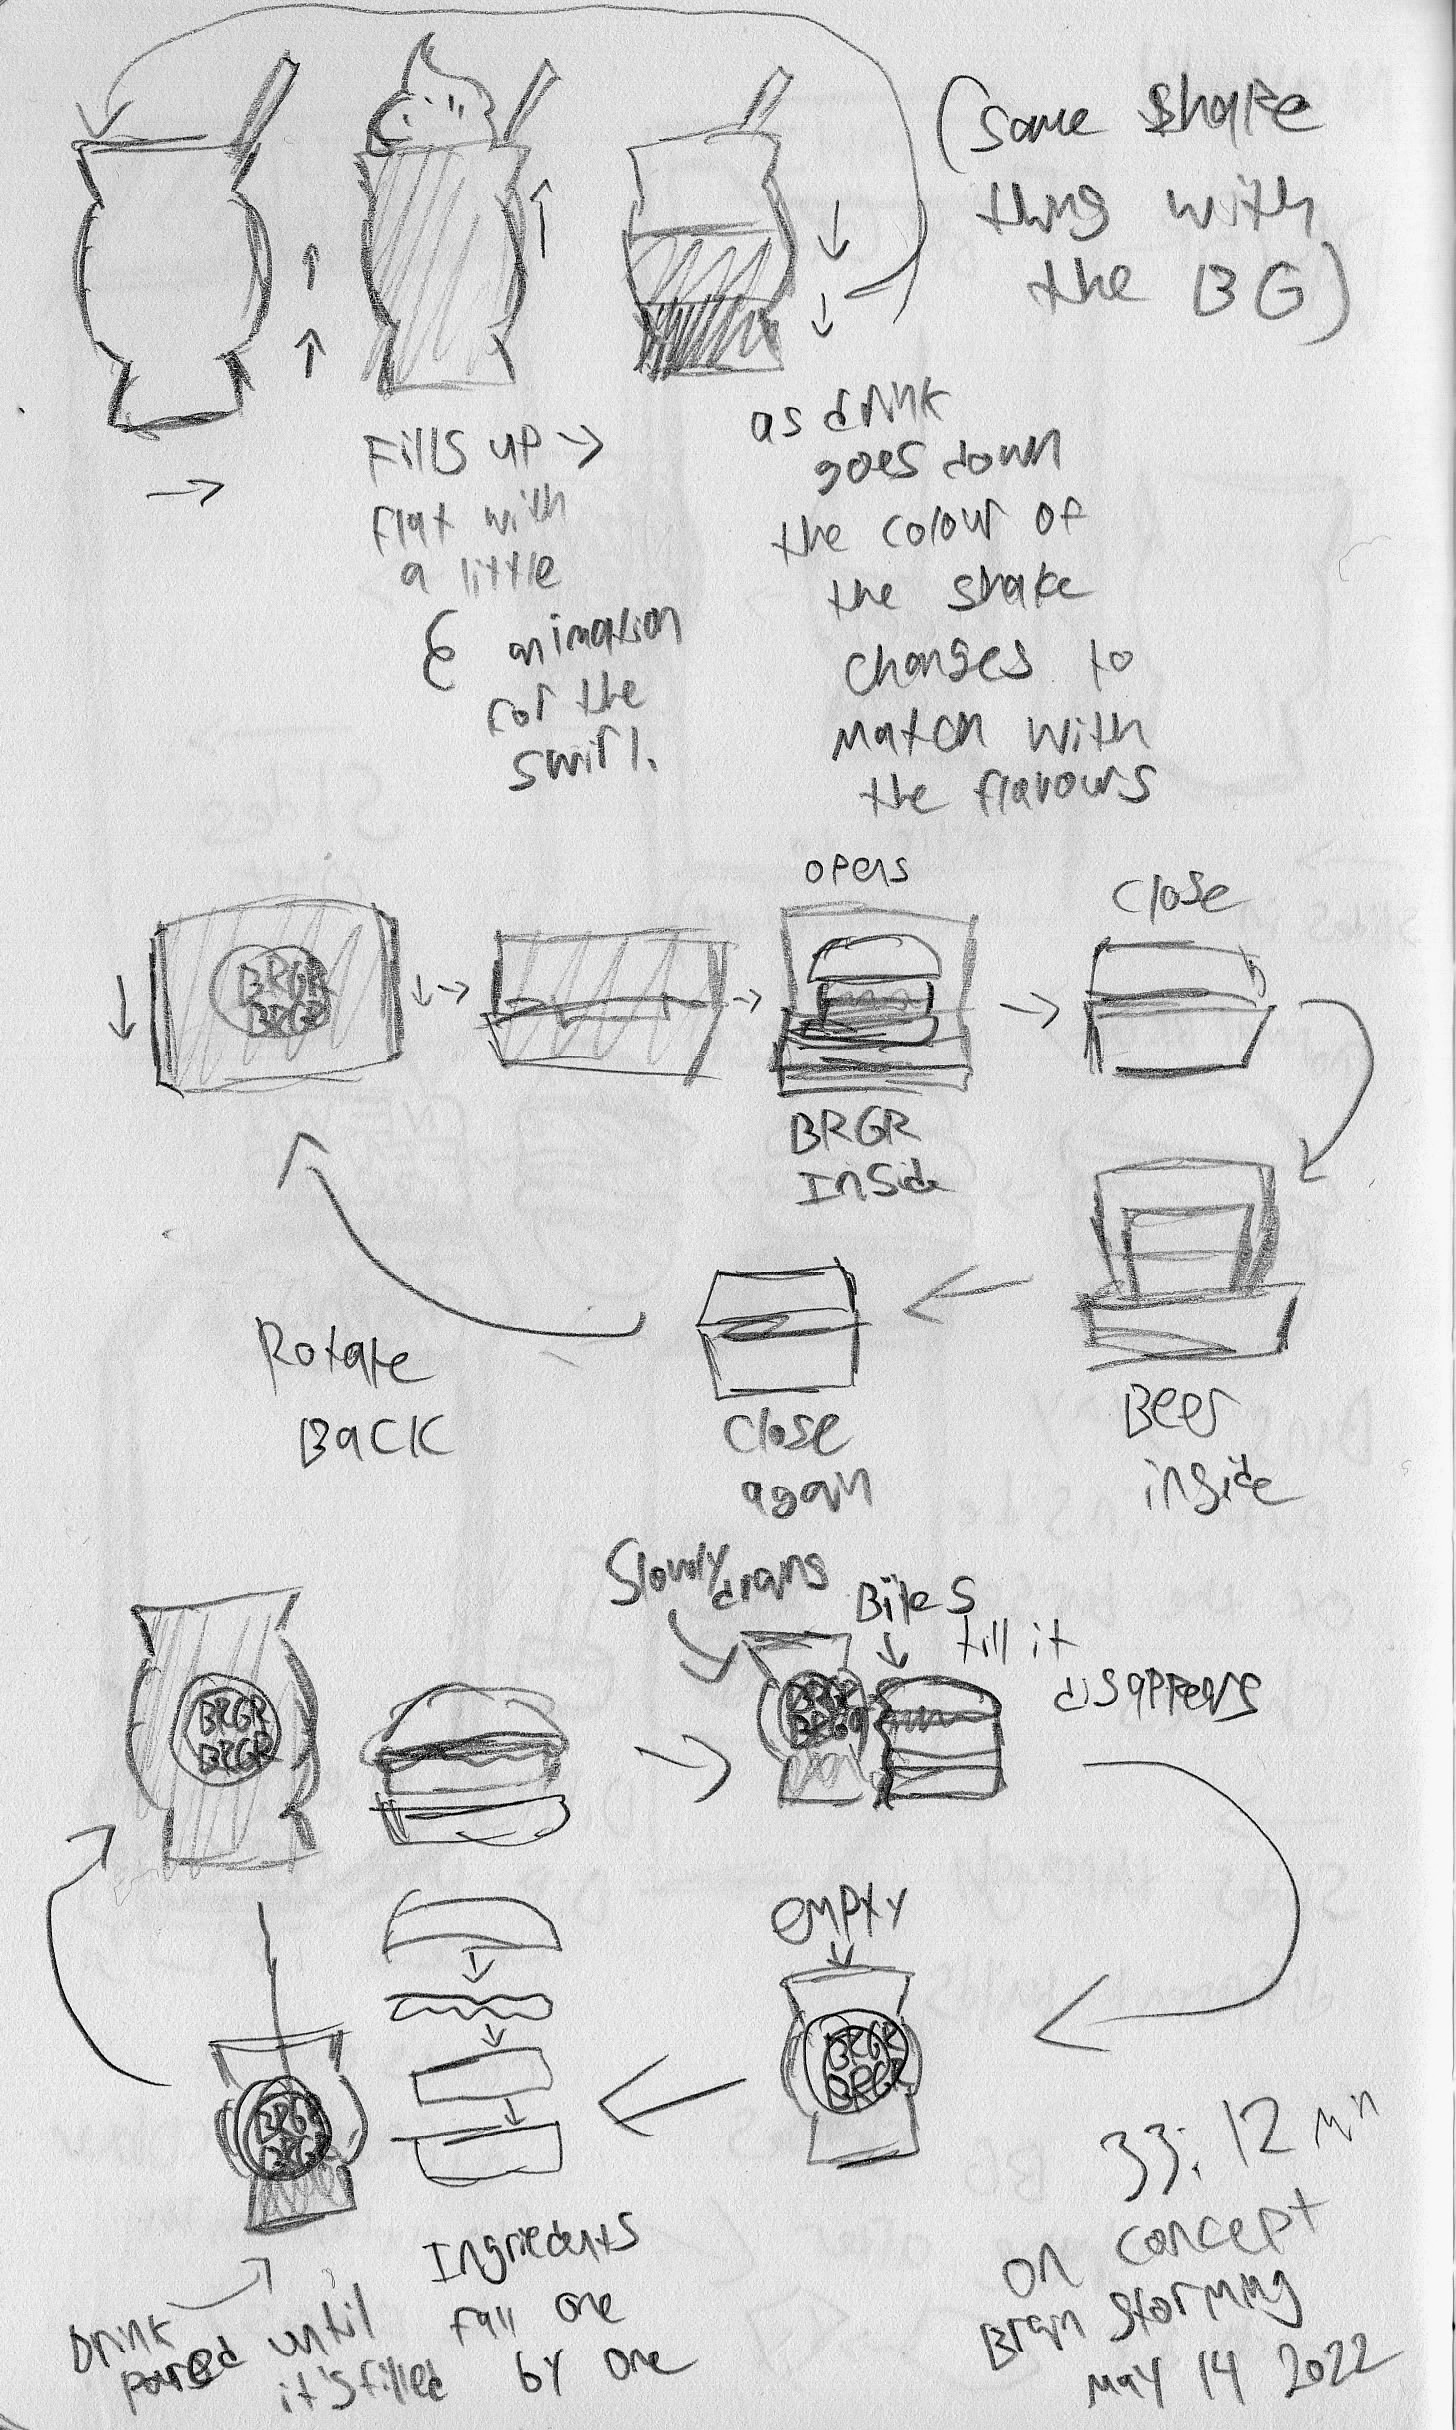 (Same shake
thing with
the BG)
Fills up →
flat with
a little
animation
for the
swirl.
as drink
goes down
the colour of
the shake
changes to
match with
the flavours
BRGR
BRGR
opens
BRGR
Inside
Close
Beer
inside
Close
again
Rotate
Back
BRGR
BRGR
Slowly drains
Bites
till it
disappears
BRGR
BRGR
empty
BRGR
BRGR
BRGR
BRGR
Ingriedents
fall one
by one
Drink
poured until
it's filled
33:12 min
on concept
Brain storming
May 14 2022